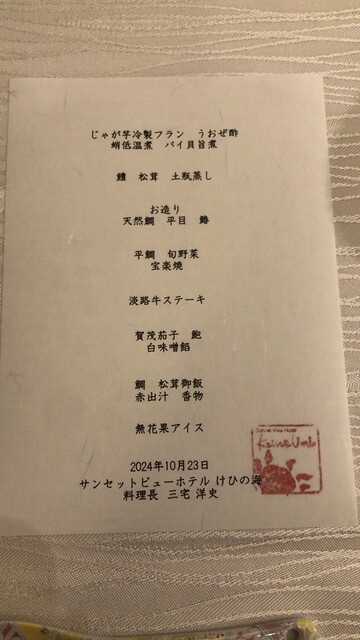 じゃが芋冷製フラン　うおぜ酢
蛸低温煮　バイ貝旨煮
鱧　松茸　土瓶蒸し
お造り
天然鯛　平目　鰆
平鯛　旬野菜
宝楽焼
淡路牛ステーキ
賀茂茄子　鮑
白味噌餡
鯛　松茸御飯
赤出汁　香物
無花果アイス
2024年10月23日
サンセットビューホテル けひの海
料理長 三宅 洋史